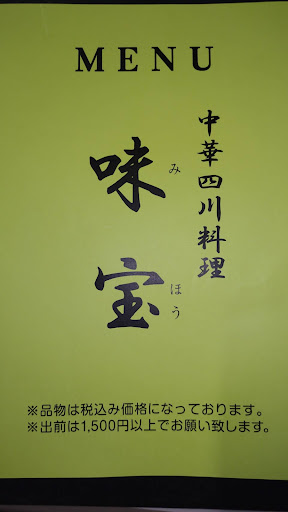 MENU
中華四川料理
味宝
みほう
※品物は税込み価格になっております。
※出前は1,500円以上でお願い致します。